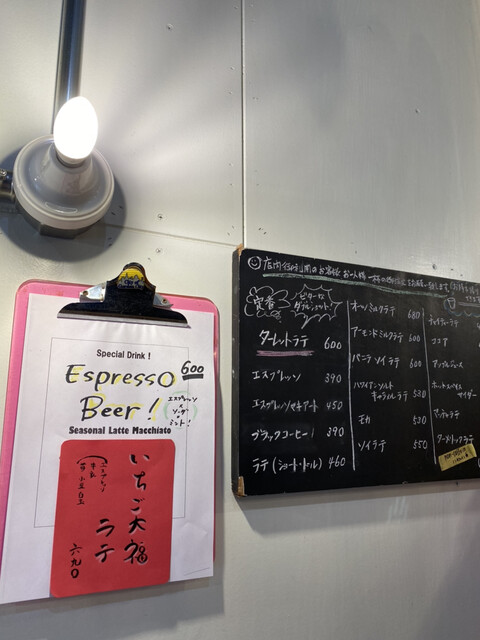 Special Drink !
Espresso 600
Beer !
エスプレッソ
ソーダ
ミント!
Seasonal Latte Macchiato
いちご大福
ラテ
六九〇
エスプレッソ
牛乳
苺 小豆 白玉
店内ご利用のお客様 お一人様
定番
ビターな
ダブルショット!
ターレットラテ 600
エスプレッソ 390
エスプレッソマキアート 450
ブラックコーヒー 390
ラテ (ショート・トール) 460
オーツミルクラテ 680
アーモンドミルクラテ 600
バニラソイラテ 600
ハワイアンソルト
キャラメルラテ 530
モカ 530
ソイラテ 550
チャイティーラテ
ココア
アップルジュース
ホットスパイス
サイダー
マッチャラテ
ターメリックラテ